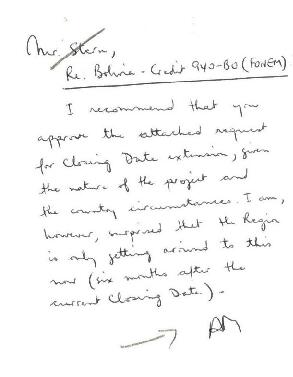 Mr. Stern,
Re. Bolivia - Credit 940-BO (FONEM)
I recommend that you
approve the attached request
for Closing Date extension, given
the nature of the project and
the country circumstances. I am,
however, surprised that the Region
is only getting around to this
now (six months after the
current Closing Date.) -